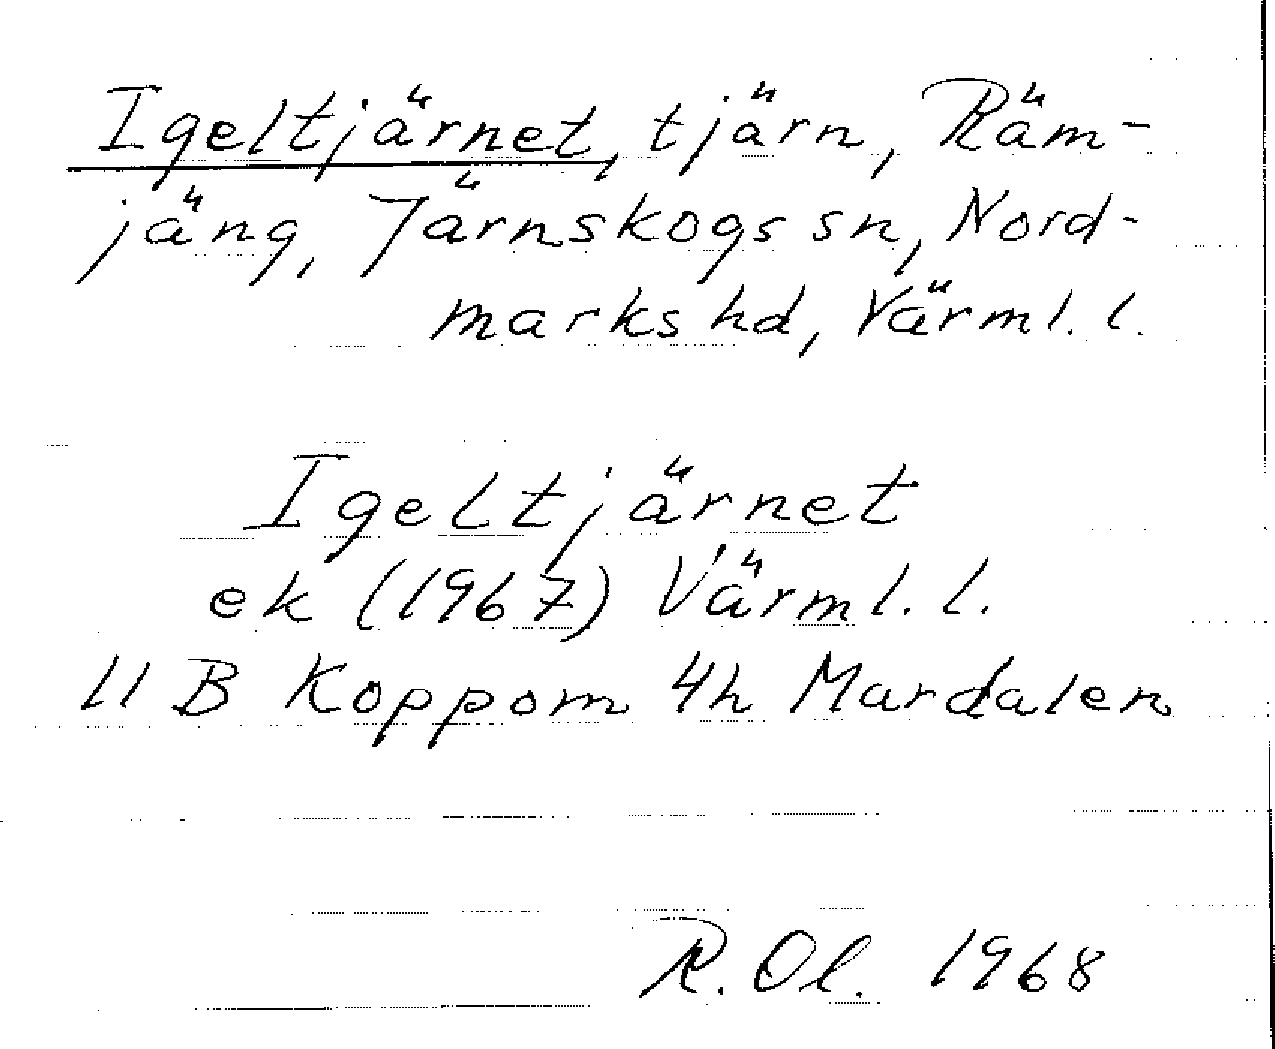 Igeltjärnet, tjärn, Räm-
jäng, Järnskogs sn, Nord-
marks hd, Värml. l.
Igeltjärnet
ek (1967) Värml. l.
11 B Koppom 4h Mardalen
R. Ol. 1968